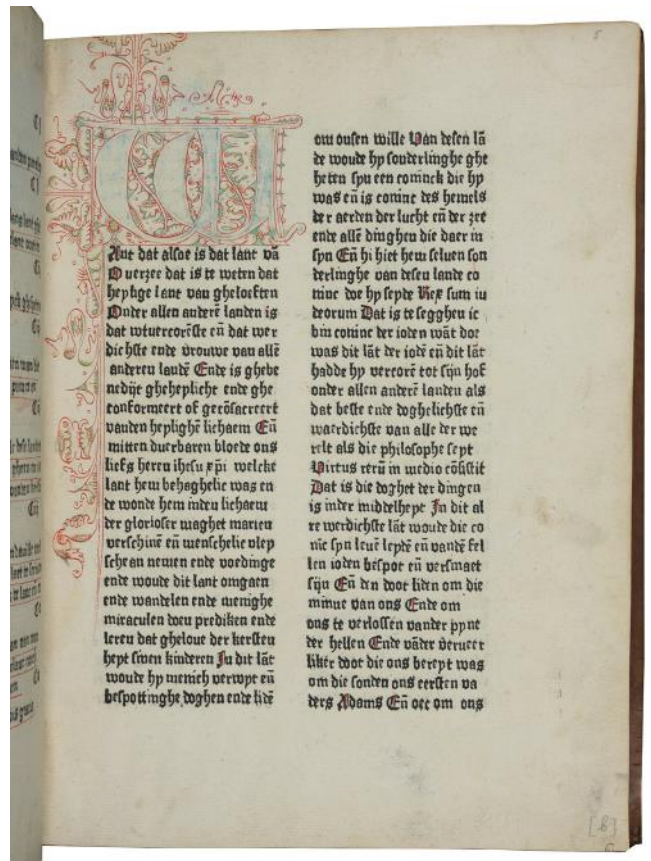 5
W
Ant dat alsoe is dat lant vā
Ouerzee dat is te weten dat
heylige lant van gheloeften
Onder allen anderē landen is
dat wtuercorēste eñ dat wer
dichste ende vrouwe van allē
anderen landē Ende is ghebe
nedijt gheheylicht ende ghe
conformeert of gecōsacreert
vanden heylighē lichaem Eñ
mitten duerbaren bloede ons
liefs heren ihesu xpi welcke
lant hem behaghelic was en
de wonde hem inden lichaem
der glorioser maghet marien
verschinē eñ menschelic vley
sche an nemen ende voedinge
ende woude dit lant omgaen
ende wandelen ende menighe
miraculen doen prediken ende
leren dat gheloue der kersten
heyt sinen kinderen In dit lāt
woude hy menich verwyt eñ
bespottinghe doghen ende lidē
om onsen wille Van desen lā
de woude hy sonderlinghe ghe
heten syn een coninck die hy
was eñ is coninc des hemels
der aerden der lucht eñ der zee
ende allē dinghen die daer in
syn Eñ hi hiet hem seluen son
derlinghe van desen lande co
ninc doe hy seyde Rex sum iu
deorum Dat is te segghen ic
bin coninc der ioden wāt doe
was dit lāt der iodē eñ dit lāt
hadde hy vercorē tot sijn hof
onder allen anderē landen als
dat beste ende doghelichste eñ
waerdichste van alle der we
relt als die philosophe seyt
Virtus rerū in medio cōsistit
Dat is die doghet der dingen
is inder middelheyt In dit al
re werdichste lāt woude die co
nic syn leuē leydē eñ vandē fel
len ioden bespot eñ versmaet
sijn Eñ den doot liden om die
minne van ons Ende om
ons te verlossen vander pyne
der hellen Ende vāder veruaer
liker doot die ons bereyt was
om die sonden ons eersten va
ders Adams Eñ oec om ons
[6]